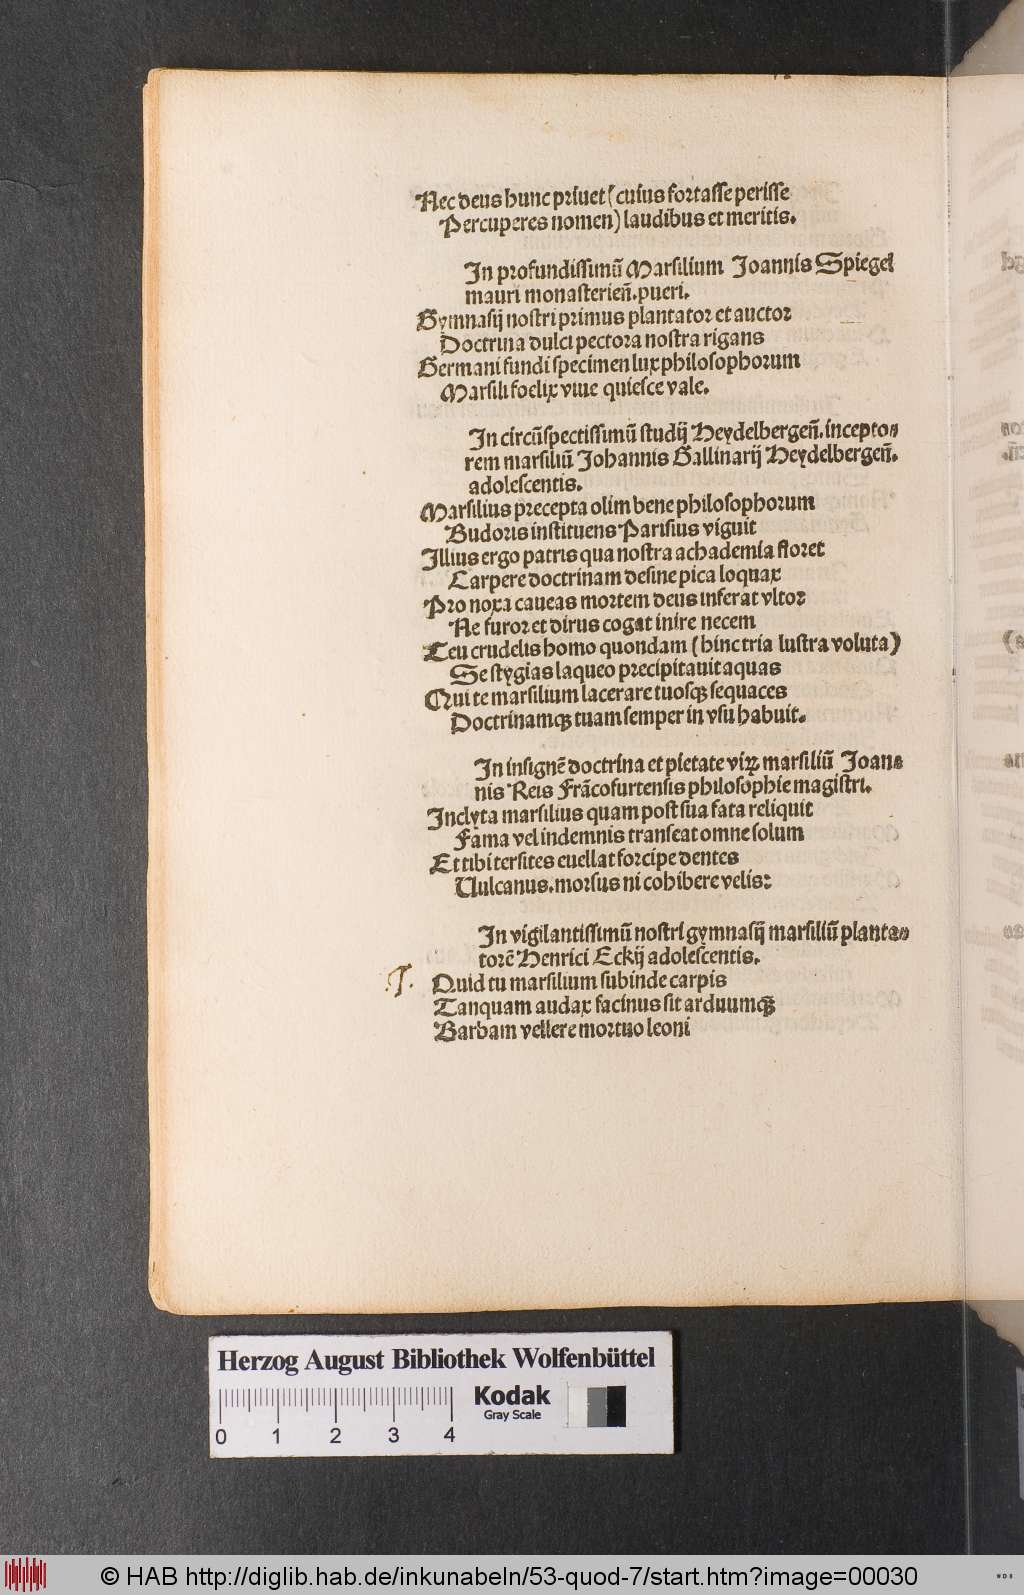 Nec deus hunc priuet (cuius fortasse perisse
Percuperes nomen) laudibus et meritis.
In profundissimū Marsilium Joannis Spiegel
mauri monasterień. pueri.
Gymnasij nostri primus plantator et auctor
Doctrina dulci pectora nostra rigans
Germani fundi specimen lux philosophorum
Marsili foelix viue quiesce vale.
In circūspectissimū studij Heydelbergeñ. incepto-
rem marsiliū Johannis Gallinarij Heydelbergeñ.
adolescentis.
Marsilius precepta olim bene philosophorum
Budoris instituens Parisius viguit
Illius ergo patris qua nostra achademia floret
Carpere doctrinam desine pica loquax
Pro noxa caueas mortem deus inferat vltor
Ne furor et dirus cogat inire necem
Ceu crudelis homo quondam (hinc tria lustra voluta)
Se stygias laqueo precipitauit aquas
Qui te marsilium lacerare tuosqꝫ sequaces
Doctrinamqꝫ tuam semper in vsu habuit.
In insignē doctrina et pietate viꝝ marsiliū Joan-
nis Reis Frācofurtensis philosophie magistri.
Inclyta marsilius quam post sua fata reliquit
Fama vel indemnis transeat omne solum
Et tibi tersites euellat forcipe dentes
Vulcanus. morsus ni cohibere velis:
In vigilantissimū nostri gymnasij marsiliū planta-
torē Henrici Eckij adolescentis.
Quid tu marsilium subinde carpis
Tanquam audax facinus sit arduumqꝫ
Barbam vellere mortuo leoni
Herzog August Bibliothek Wolfenbüttel
Kodak
Gray Scale
0 1 2 3 4
© HAB http://diglib.hab.de/inkunabeln/53-quod-7/start.htm?image=00030